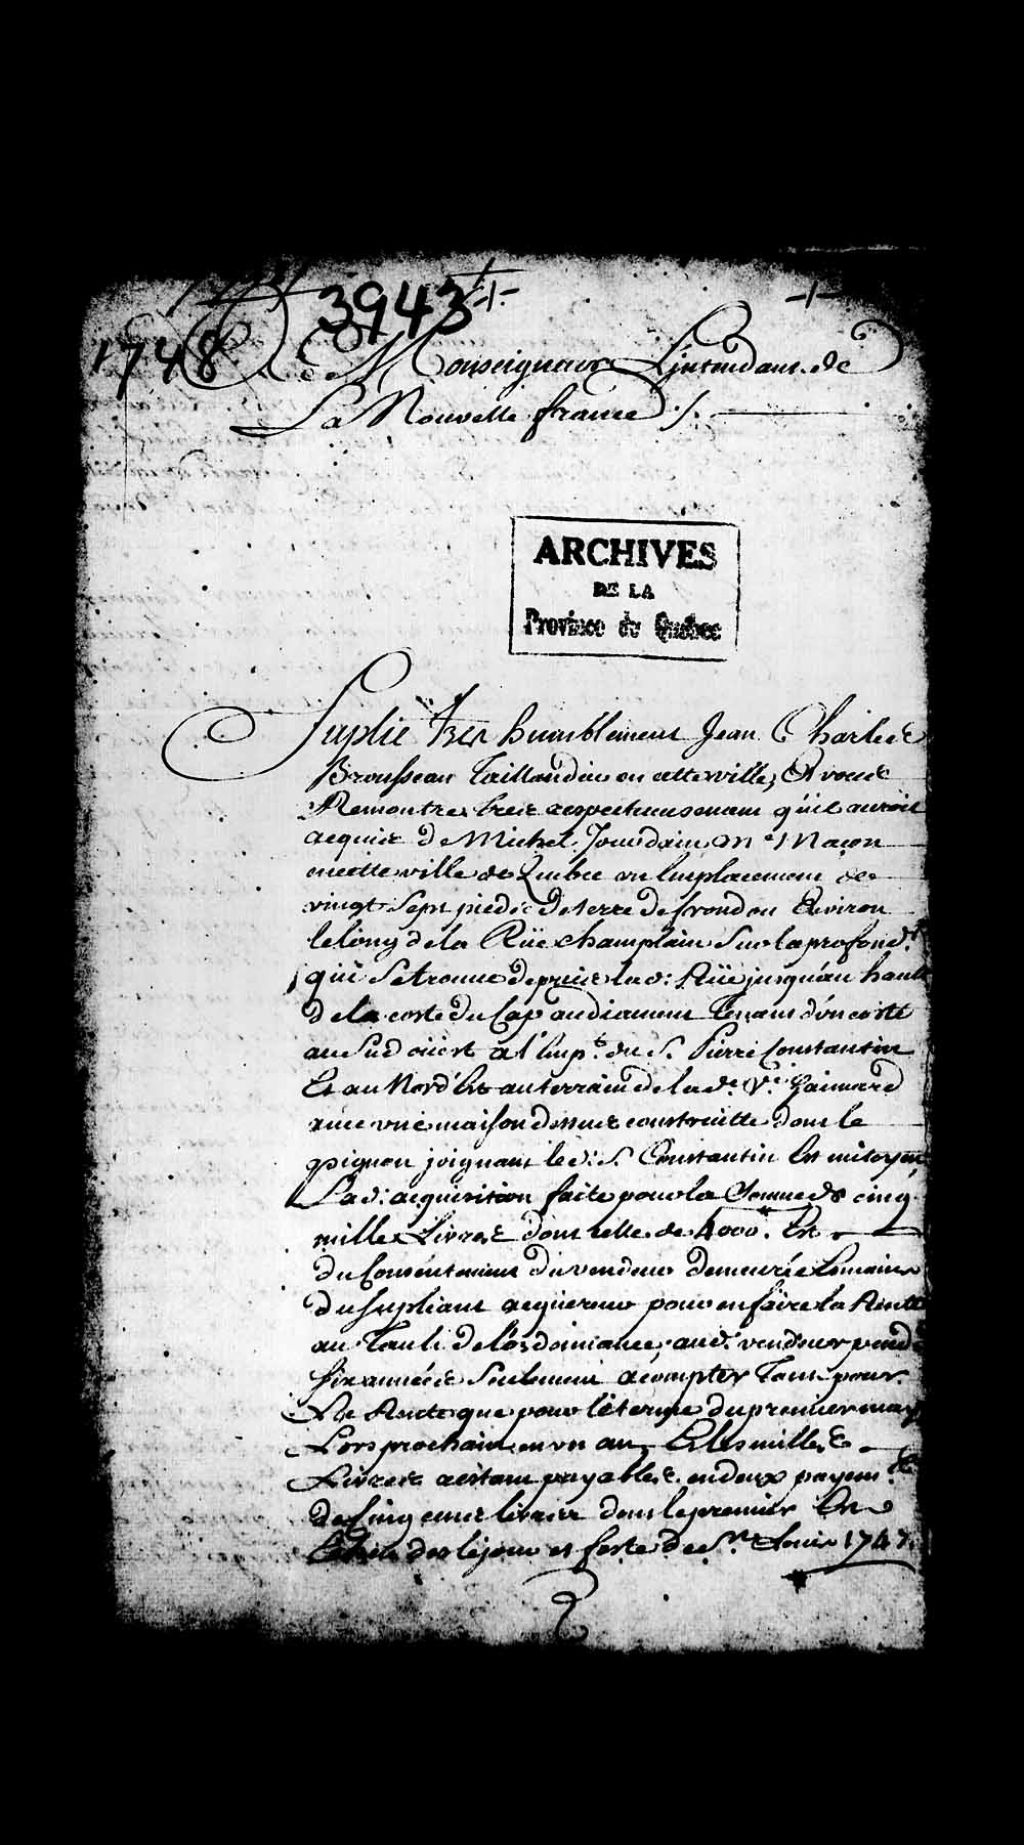 3943
1748
A Monseigneur L'jntendant de
La Nouvelle france ./.
ARCHIVES
DE LA
Province de Québec
Suplie tres humblement Jean Charles
Brousseau Taillandier en cette ville, Et vous
Remontre tres respectueusement qu'il auroit
acquis de Michel Jourdain Me Maçon
en cette ville de Quebec un Emplacement de
vingt Sept pieds de terre de frond ou Environ
le long de la Rüe champlain Sur la profondr
qui Se trouve depuis lad: Rüe jusqu'au hault
de la coste du Cap au diament tenant d'un costé
au Sud oüest a l'Empt. du S. Pierre Constantin
Et au Nord Est au terrain de la de. Ve. Gaimard
avec une maison dessus construitte dont le
pignon joignant led: S. Constantin Est mitoyen,
Lad: acquisition faite pour la Somme de cinq
mille Livres dont celle de 4000. Est
du Consentement du vendeur demeurée Es mains
du Supliant acquereur pour en faire la Rente
au Taux de l'ordonnance, aud. vendeur pendt
Six années Seulement a compter tant pour
La Rente que pour le terme du premier may
Lors prochain en un an, Et les mille
Livres restant payables en deux payemts.
de Cinq cens livres dont le premier Est
des le jour et feste de St. Louis 1747.